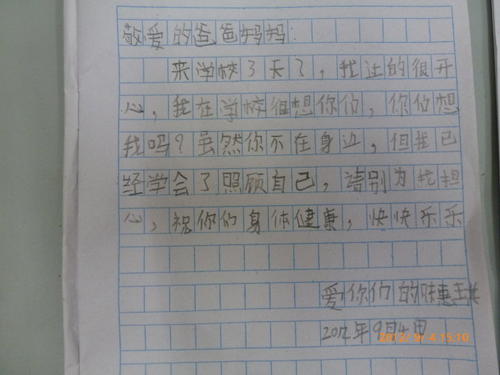 敬爱的爸爸妈妈:
来学校了天了,我过的很开
心,我在学校很想你们,你们想
我吗?虽然你不在身边,但我已
经学会了照顾自己,请别为我担
心,祝你们身体健康,快快乐乐
爱你们的
2012年9月4日
2012/9/4 15:10